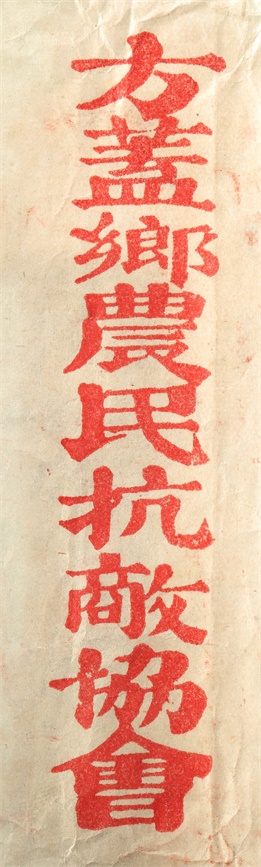 方蓋鄉農民抗敵協會